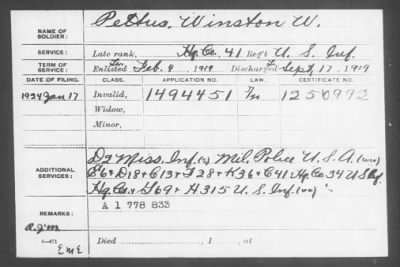 NAME OF SOLDIER: Pettus, Winston W.
SERVICE: Late rank, Hq. Co. 41 Reg't U. S. Inf.
TERM OF SERVICE: Enlisted Feb. 9, 1918 Discharged Sept. 17, 1919
DATE OF FILING. CLASS. APPLICATION NO. LAW. CERTIFICATE NO.
1924 Jan 17 Invalid, 1494451 1250972
Widow,
Minor,
D 2 Miss. Inf. Mil. Police U. S. A.
ADDITIONAL SERVICES: E 6 & D 18 & C 13 & F 28 & K 36 & C 41 Hq. Co. 34 U S Inf.
Hq. Co. & F 69 & A 315 U. S. Inf.
A 1 778 833
REMARKS:
Died , 1 , at